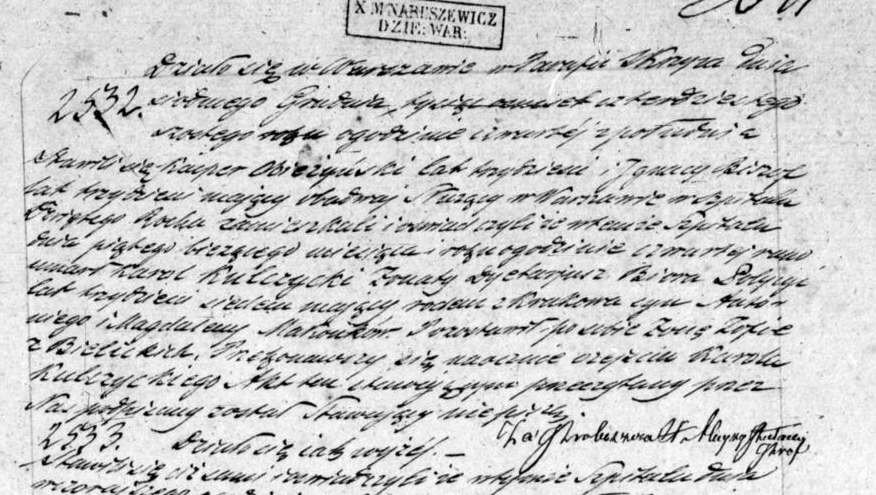 X M NARUSZEWICZ
DZIE: WAR:
Działo się w Warszawie w Parafii Skrzya dnia
2532. siódmego Grudnia, tysiąc ośmset czterdziestego
szóstego roku o godzinie czwartéj z południa
Stawili się Kacper Obiezyński lat trzydzieści i Ignacy Józef
lat trzydzieści mający obadwaj Służący w Warszawie w szpitalu
Świętego Rocha zamieszkali i oświadczyli że w temże Szpitalu
dnia piątego bieżącego miesiąca i roku o godzinie czwartej rano
umarł Karol Kulczycki Żonaty Dyetaryusz Biura Policyi
lat trzydzieści siedem mający rodem z Krakowa syn Anto-
niego i Magdaleny Małżonków. Pozostawił po sobie Żonę Zofię
z Bielickich. Przekonawszy się naocznie o zejściu Karola
Kulczyckiego Akt ten stawającym przeczytany przez
Nas podpisany został Stawający nie piszą
Za Proboszcza
2533. Działo się jak wyżéj. —
Stawili się ciż sami i oświadczyli że w temże Szpitalu dnia
wczorajszego